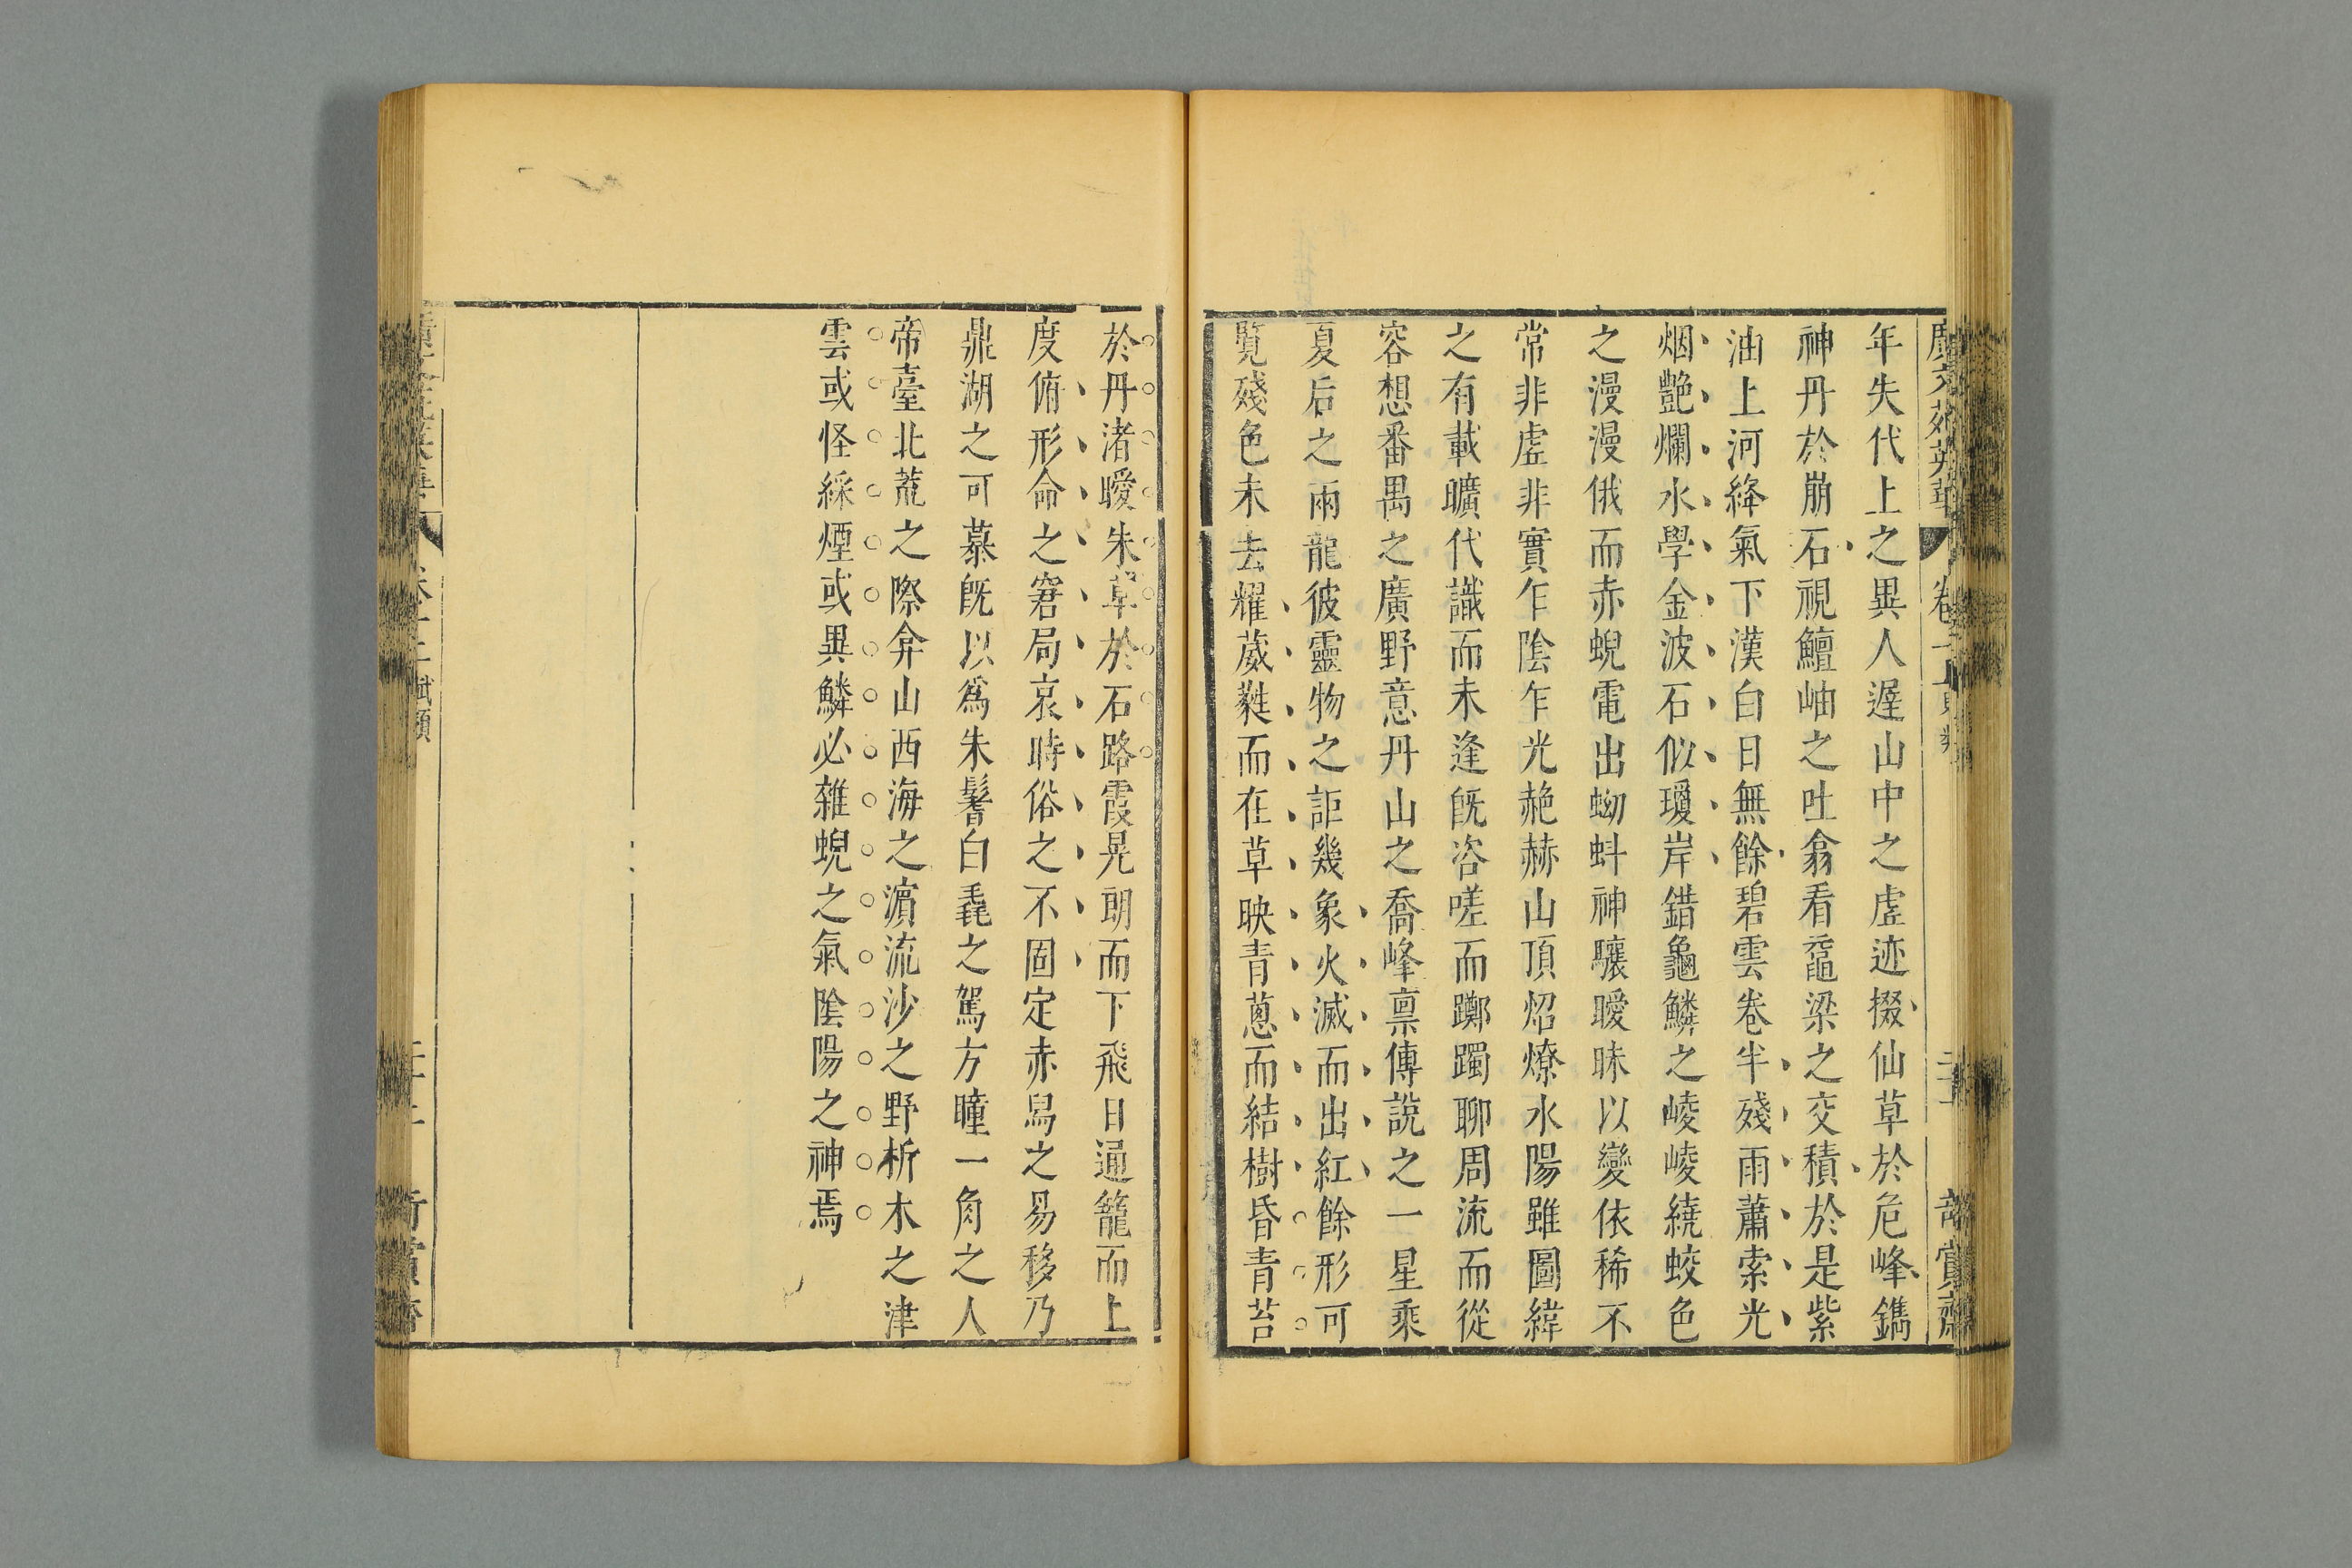 廣文苑英華
年失代上之異人遲山中之虛迹掇仙草於危峰鐫
神丹於崩石視鱣岫之吐翕看黿梁之交積於是紫
油上河絳氣下漢白日無餘碧雲卷半殘雨蕭索光
烟艷爛水學金波石似瓊岸錯龜鱗之崚崚繞蛟色
之漫漫俄而赤蜺電出蚴蚪神驤曖昧以變依稀不
常非虛非實乍陰乍光艴赫山頂炤燎水陽雖圖緯
之有載曠代識而未逢旣咨嗟而躑躅聊周流而從
容想番禺之廣野意丹山之喬峰禀傳說之一星乘
夏后之兩龍彼靈物之詎幾象火滅而出紅餘形可
覧殘色未去耀葳蕤而在草映青蔥而結樹昏青苔
於丹渚曖朱草於石路霞晃朗而下飛日通籠而上
度俯形命之窘局哀時俗之不固定赤舄之易移乃
鼎湖之可慕旣以爲朱髾白毳之駕方瞳一角之人
帝臺北荒之際弇山西海之濵流沙之野析木之津
雲或怪綵煙或異鱗必雜蜺之氣陰陽之神焉
賦類